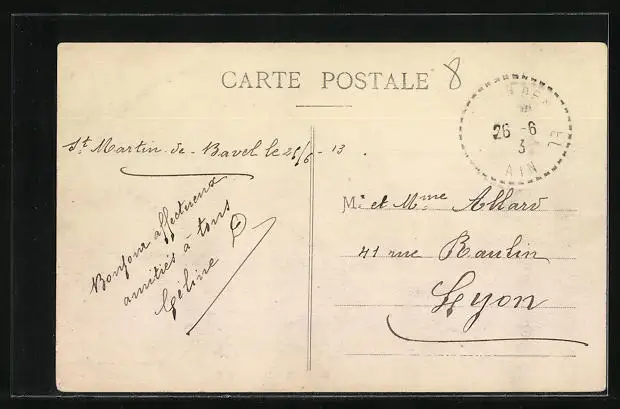 CARTE POSTALE 8
26 -6
3
AIN
St Martin-de-Bavel le 25/6-13.
Bonjour affectueux
amitiés à tous
Céline
M. et Mme Allard
41 rue Raulin
Lyon